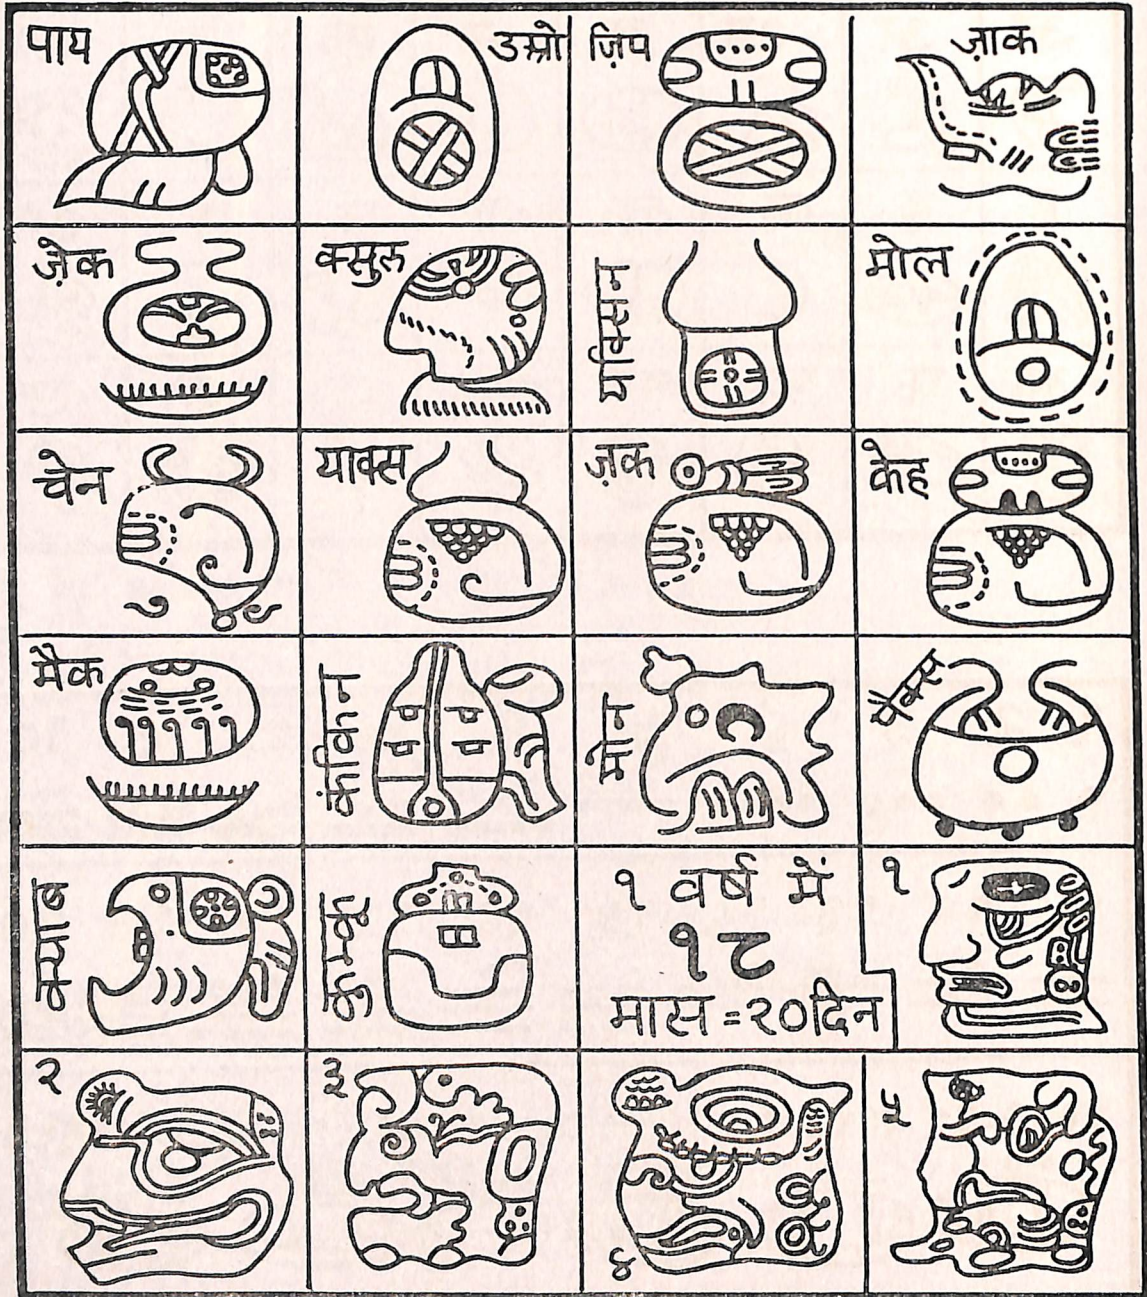 पाय
उओ
ज़िप
ज़ाक
ज़ेक
क्सुल
यक्सिन
मोल
चेन
याक्स
ज़क
केह
मैक
कंकिन
मोन
पॅक्स
क्याब
कुम्कू
१ वर्ष में
१८
मास = २० दिन
१
२
३
४
५